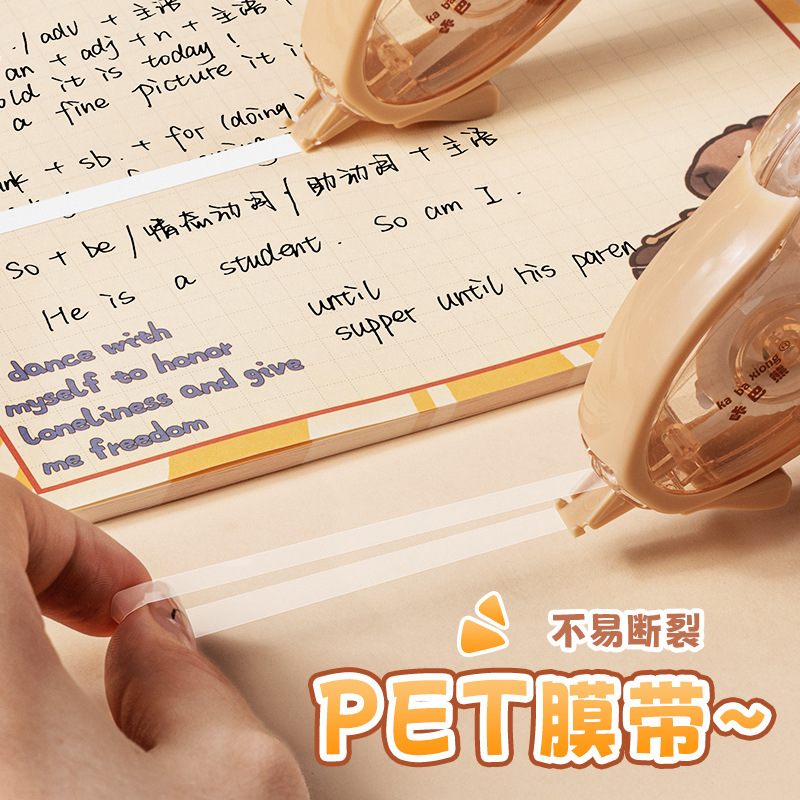 ./ adv + 主语
an + adj + n + 主语 +
old it is today!
a fine picture it is
ank + sb. + for (doing)
So + be / 情态动词 / 助动词 + 主语
He is a student. So am I.
until
supper until his paren
dance with
myself to honor
loneliness and give
me freedom
ka ba xiong
咔巴熊
不易断裂
PET膜带~